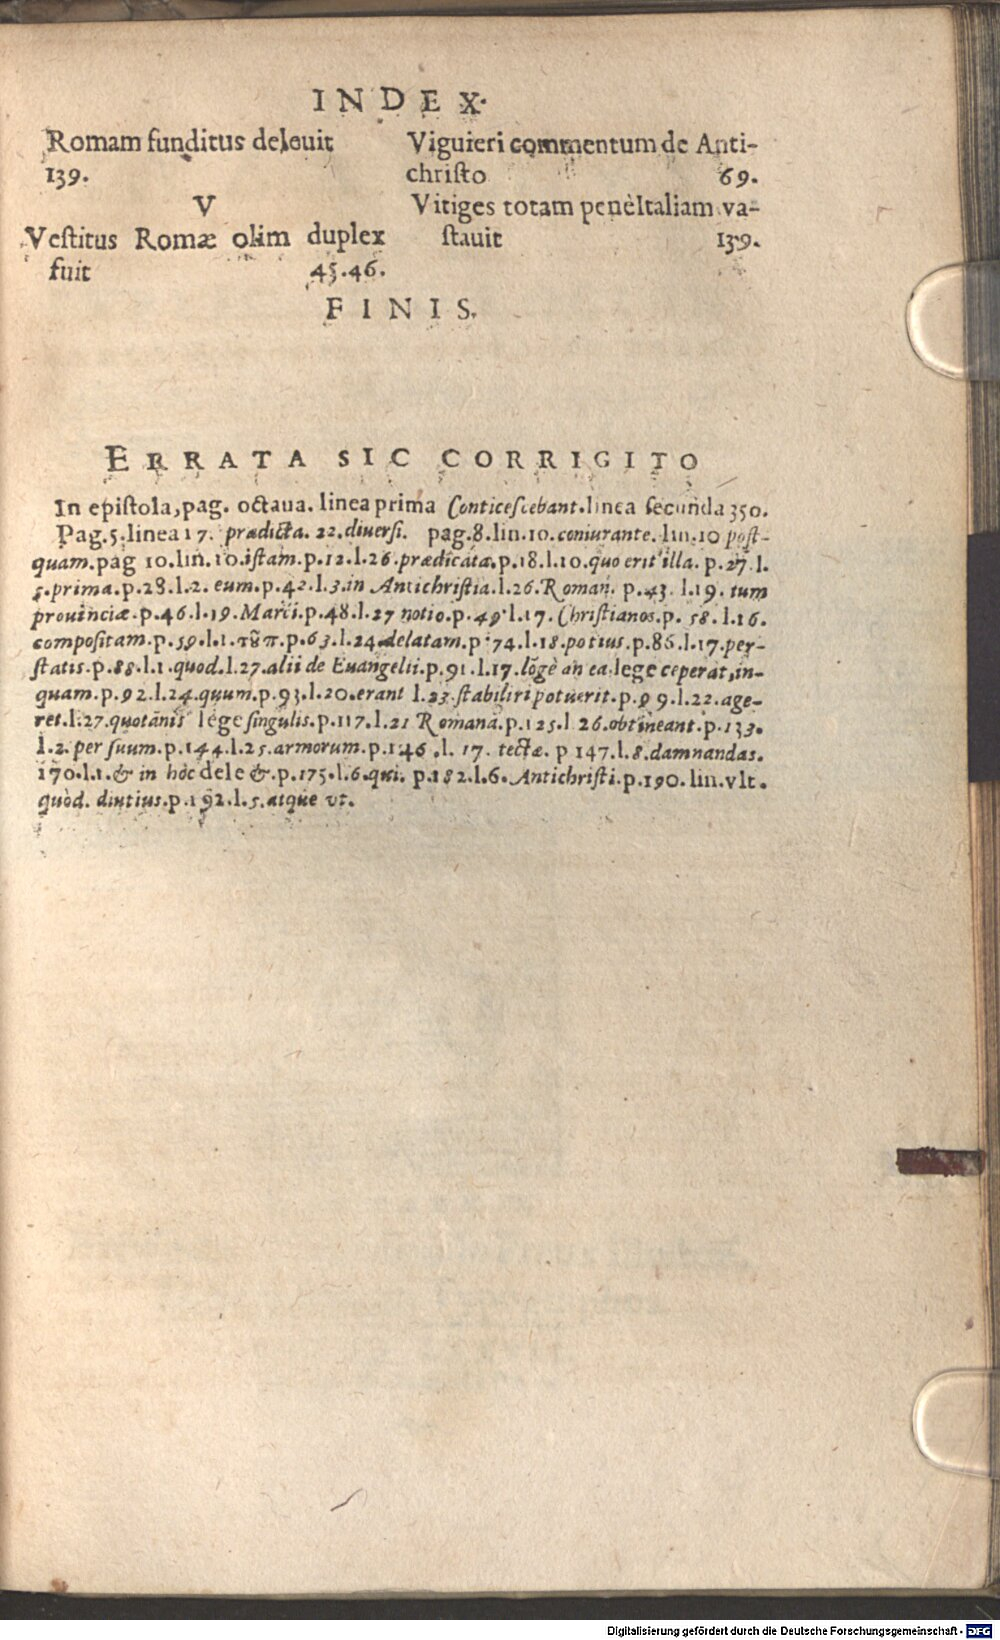 INDEX.
Romam funditus deleuit
139.
V
Vestitus Romæ olim duplex
fuit 45.46.
Viguieri commentum de Anti-
christo 69.
Vitiges totam penè Italiam va-
stauit 139.
FINIS.
ERRATA SIC CORRIGITO
In epistola, pag. octaua. linea prima Conticescebant. linea secunda 350.
Pag. 5. linea 17. prædicta. 22. diuersi. pag. 8. lin. 10. coniurante. lin. 10 post-
quam. pag 10. lin. 10. istam. p. 12. l. 26. prædicata. p. 18. l. 10. quo erit illa. p. 27. l.
5. prima. p. 28. l. 2. eum. p. 42. l. 3. in Antichristia. l. 26. Roman. p. 43. l. 19. tum
prouinciæ. p. 46. l. 19. Marci. p. 48. l. 27 notio. p. 49. l. 17. Christianos. p. 58. l. 16.
compositam. p. 59. l. 1. p. 63. l. 24. delatam. p. 74. l. 18. potius. p. 86. l. 17. per-
statis. p. 88. l. 1. quod. l. 27. alii de Euangelii. p. 91. l. 17. lõgè an ea. lege ceperat, in-
quam. p. 92. l. 24. quum. p. 93. l. 20. erant l. 23. stabiliri potuerit. p. 99. l. 22. age-
ret. l. 27. quotannis lege singulis. p. 117. l. 21 Romanâ. p. 125. l 26. obtineant. p. 133.
l. 2. per suum. p. 144. l. 25. armorum. p. 146. l. 17. tectæ. p 147. l. 8. damnandas.
170. l. 1. & in hôc dele &. p. 175. l. 6. qui. p. 182. l. 6. Antichristi. p. 190. lin. vlt.
quòd. diutius. p. 192. l. 5. atque vt.
Digitalisierung gefördert durch die Deutsche Forschungsgemeinschaft - DFG